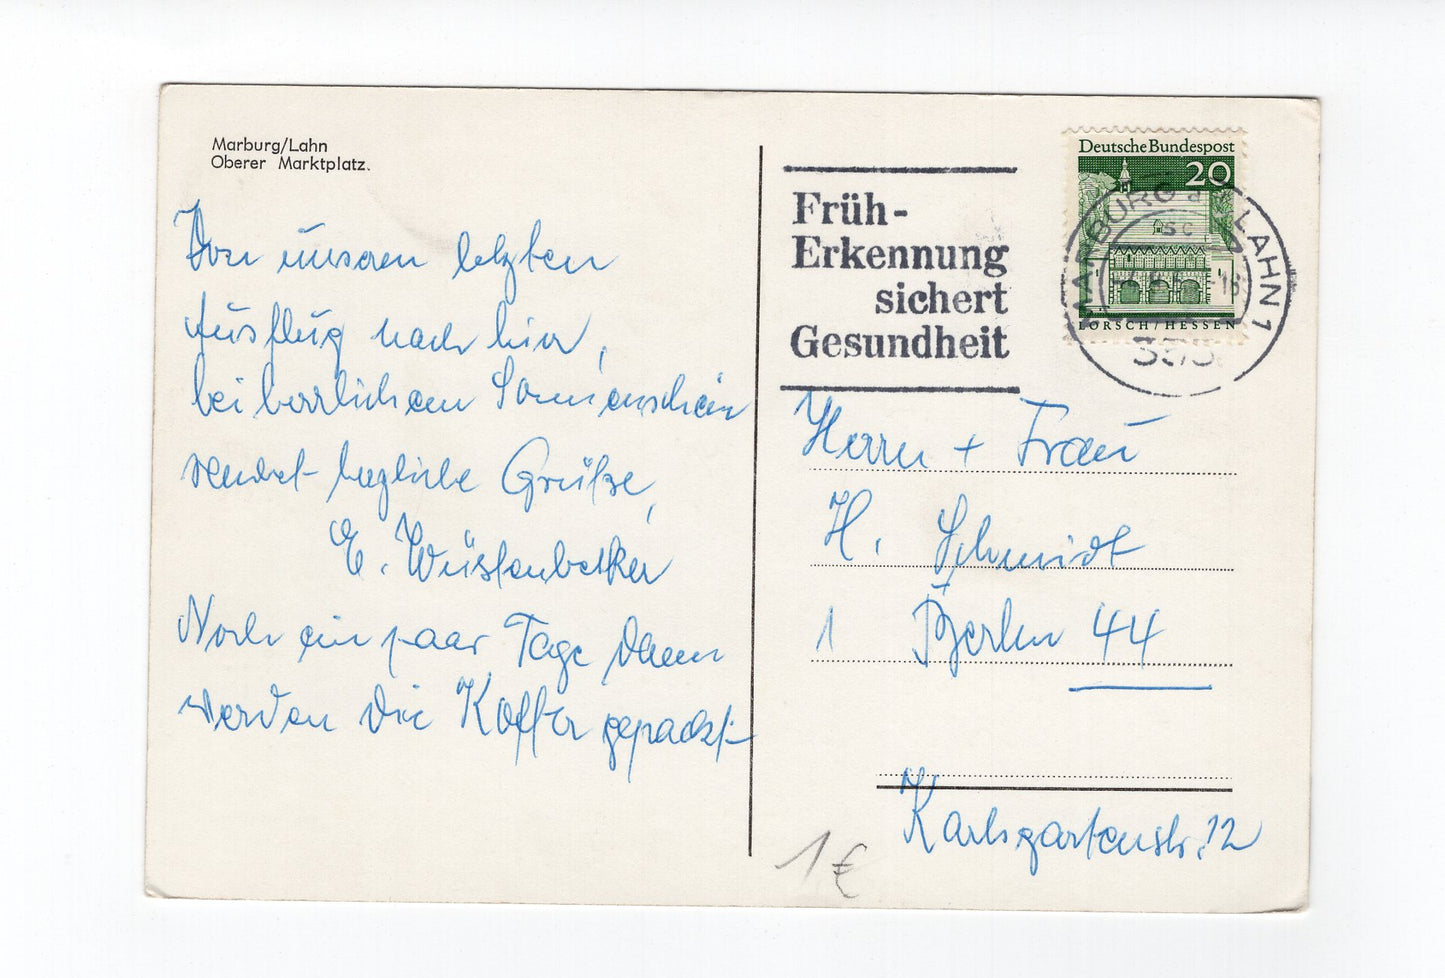 Marburg/Lahn
Oberer Marktplatz.
Von unserem letzten
Ausflug nach hier,
bei herrlichem Sonnenschein
sendet herzliche Grüße,
E. Wüstenbecker
Noch ein paar Tage dann
werden die Koffer gepackt
Früh-
Erkennung
sichert
Gesundheit
Deutsche Bundespost
20
LORSCH/HESSEN
MARBURG LAHN 1
sc
355
Herrn + Frau
H. Schmidt
1 Berlin 44
Karlsgartenstr. 12
1 €